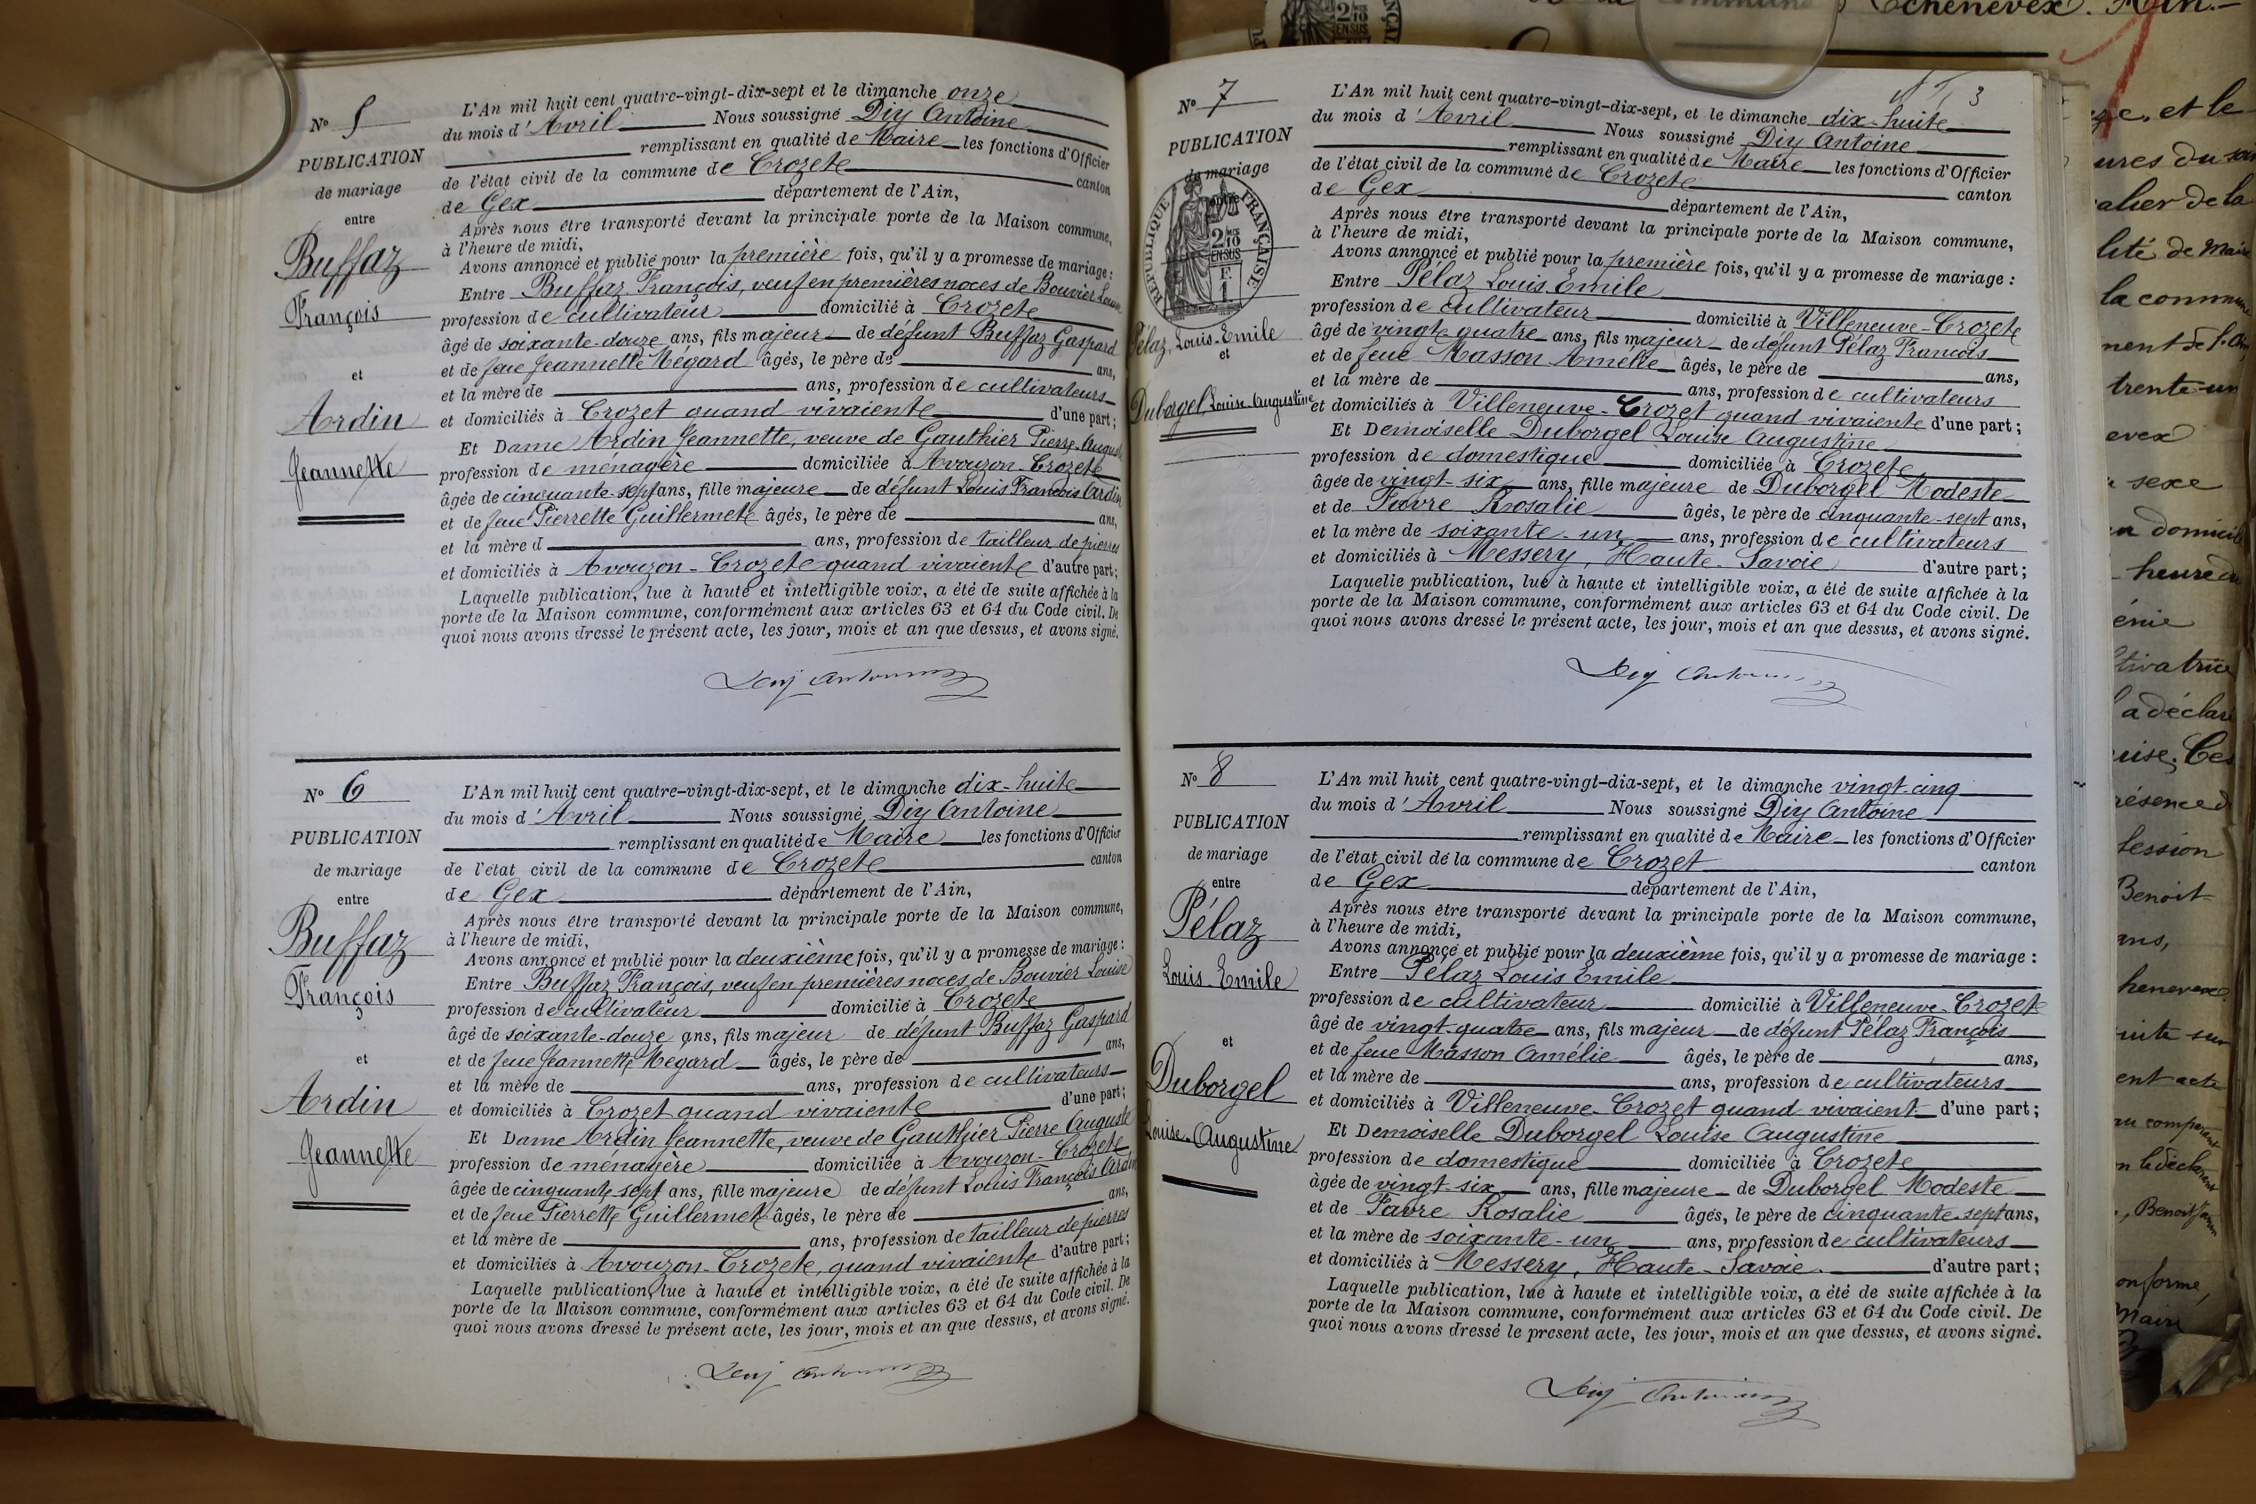 N° 5
PUBLICATION
de mariage
entre
Buffaz
François
et
Ardin
Jeannette
L'An mil huit cent quatre-vingt-dix-sept et le dimanche onze
du mois d'Avril Nous soussigné Diy Antoine
remplissant en qualité de Maire les fonctions d'Officier
de l'état civil de la commune de Crozet canton
de Gex département de l'Ain,
Après nous être transporté devant la principale porte de la Maison commune,
à l'heure de midi,
Avons annoncé et publié pour la première fois, qu'il y a promesse de mariage :
Entre Buffaz François, veuf en premières noces de Bouvier Louise
profession de cultivateur domicilié à Crozet
âgé de soixante-douze ans, fils majeur de défunt Buffaz Gaspard
et de feue Jeannette Mégard âgés, le père de ans,
et la mère de ans, profession de cultivateurs
et domiciliés à Crozet quand vivaient d'une part ;
Et Dame Ardin Jeannette, veuve de Gauthier Pierre-Auguste
profession de ménagère domiciliée à Avouzon-Crozet
âgée de cinquante-sept ans, fille majeure de défunt Louis François Ardin
et de feue Pierrette Guillermet âgés, le père de ans,
et la mère d ans, profession de tailleur de pierres
et domiciliés à Avouzon-Crozet quand vivaient d'autre part ;
Laquelle publication, lue à haute et intelligible voix, a été de suite affichée à la
porte de la Maison commune, conformément aux articles 63 et 64 du Code civil. De
quoi nous avons dressé le présent acte, les jour, mois et an que dessus, et avons signé.
Diy Antoine
N° 6
PUBLICATION
de mariage
entre
Buffaz
François
et
Ardin
Jeannette
L'An mil huit cent quatre-vingt-dix-sept, et le dimanche dix-huit
du mois d'Avril Nous soussigné Diy Antoine
remplissant en qualité de Maire les fonctions d'Officier
de l'état civil de la commune de Crozet canton
de Gex département de l'Ain,
Après nous être transporté devant la principale porte de la Maison commune,
à l'heure de midi,
Avons annoncé et publié pour la deuxième fois, qu'il y a promesse de mariage :
Entre Buffaz François, veuf en premières noces de Bouvier Louise
profession de cultivateur domicilié à Crozet
âgé de soixante-douze ans, fils majeur de défunt Buffaz Gaspard
et de feue Jeannette Mégard âgés, le père de ans,
et la mère de ans, profession de cultivateurs
et domiciliés à Crozet quand vivaient d'une part ;
Et Dame Ardin Jeannette, veuve de Gauthier Pierre Auguste
profession de ménagère domiciliée à Avouzon-Crozet
âgée de cinquante sept ans, fille majeure de défunt Louis François Ardin
et de feue Pierrette Guillermet âgés, le père de ans,
et la mère de ans, profession de tailleur de pierres
et domiciliés à Avouzon-Crozet, quand vivaient d'autre part ;
Laquelle publication, lue à haute et intelligible voix, a été de suite affichée à la
porte de la Maison commune, conformément aux articles 63 et 64 du Code civil. De
quoi nous avons dressé le présent acte, les jour, mois et an que dessus, et avons signé.
Diy Antoine
3
N° 7
PUBLICATION
de mariage
entre
RÉPUBLIQUE FRANÇAISE
2/10 EN SUS
F.
1
Pélaz, Louis-Emile
et
Duborgel Louise Augustine
L'An mil huit cent quatre-vingt-dix-sept, et le dimanche dix-huit
du mois d'Avril Nous soussigné Diy Antoine
remplissant en qualité de Maire les fonctions d'Officier
de l'état civil de la commune de Crozet canton
de Gex département de l'Ain,
Après nous être transporté devant la principale porte de la Maison commune,
à l'heure de midi,
Avons annoncé et publié pour la première fois, qu'il y a promesse de mariage :
Entre Pélaz Louis Emile
profession de cultivateur domicilié à Villeneuve-Crozet
âgé de vingt-quatre ans, fils majeur de défunt Pélaz François
et de feue Masson Amélie âgés, le père de ans,
et la mère de ans, profession de cultivateurs
et domiciliés à Villeneuve-Crozet quand vivaient d'une part ;
Et Demoiselle Duborgel Louise Augustine
profession de domestique domiciliée à Crozet
âgée de vingt-six ans, fille majeure de Duborgel Modeste
et de Favre Rosalie âgés, le père de cinquante-sept ans,
et la mère de soixante-un ans, profession de cultivateurs
et domiciliés à Messery, Haute-Savoie d'autre part ;
Laquelle publication, lue à haute et intelligible voix, a été de suite affichée à la
porte de la Maison commune, conformément aux articles 63 et 64 du Code civil. De
quoi nous avons dressé le présent acte, les jour, mois et an que dessus, et avons signé.
Diy Antoine
N° 8
PUBLICATION
de mariage
entre
Pélaz
Louis-Emile
et
Duborgel
Louise-Augustine
L'An mil huit cent quatre-vingt-dix-sept, et le dimanche vingt-cinq
du mois d'Avril Nous soussigné Diy Antoine
remplissant en qualité de Maire les fonctions d'Officier
de l'état civil de la commune de Crozet canton
de Gex département de l'Ain,
Après nous être transporté devant la principale porte de la Maison commune,
à l'heure de midi,
Avons annoncé et publié pour la deuxième fois, qu'il y a promesse de mariage :
Entre Pélaz Louis Emile
profession de cultivateur domicilié à Villeneuve-Crozet
âgé de vingt-quatre ans, fils majeur de défunt Pélaz François
et de feue Masson Amélie âgés, le père de ans,
et la mère de ans, profession de cultivateurs
et domiciliés à Villeneuve-Crozet quand vivaient d'une part ;
Et Demoiselle Duborgel Louise Augustine
profession de domestique domiciliée à Crozet
âgée de vingt-six ans, fille majeure de Duborgel Modeste
et de Favre Rosalie âgés, le père de cinquante-sept ans,
et la mère de soixante-un ans, profession de cultivateurs
et domiciliés à Messery, Haute-Savoie d'autre part ;
Laquelle publication, lue à haute et intelligible voix, a été de suite affichée à la
porte de la Maison commune, conformément aux articles 63 et 64 du Code civil. De
quoi nous avons dressé le présent acte, les jour, mois et an que dessus, et avons signé.
Diy Antoine
commune Echenevex. Ain.
et le
de la
de Maire
la commune
trente-un
sexe
domicile
heure du
a déclaré
session
Benoit
ans,
acte
Benoit
Maire